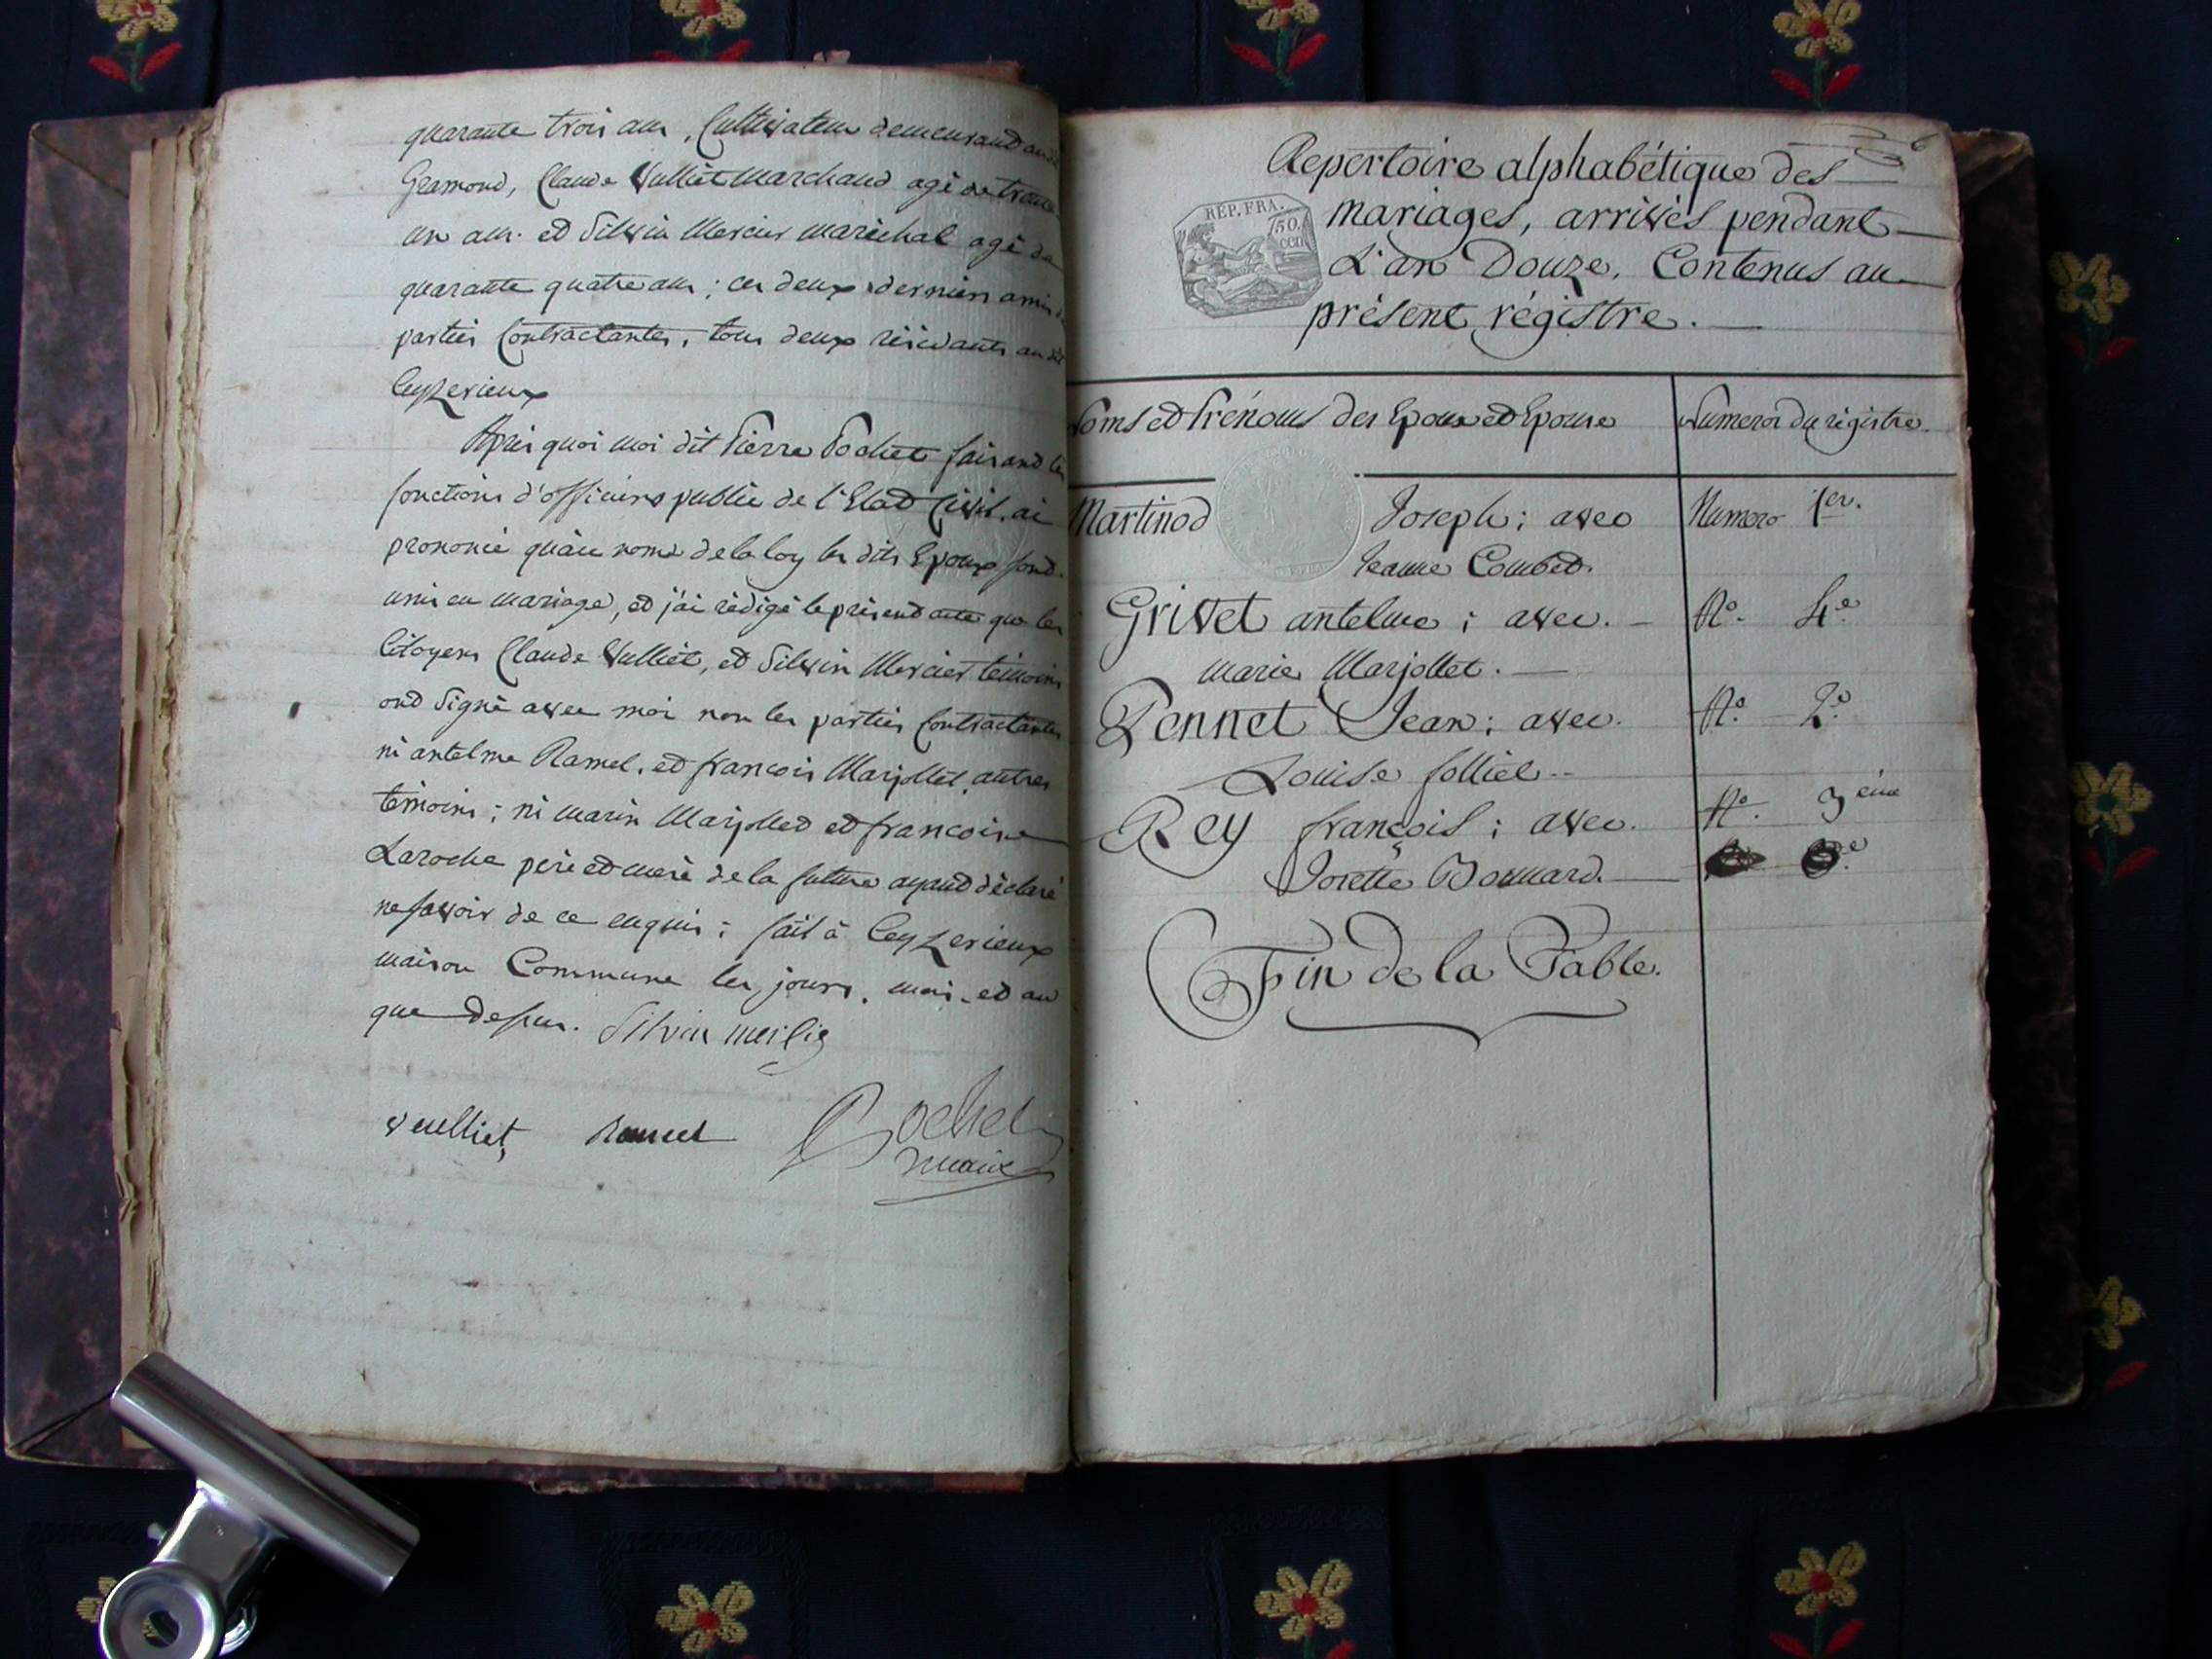 quarante trois ans, Cultivateur demeurand au dit
Gramond, Claude Vulliet Marchand agé de trente
un ans. et Silvin Mercier maréchal agé de
quarante quatre ans ; ces deux derniers amis des
parties Contractantes, tous deux résidants au dit
Ceyzerieux
Après quoi moi dit Pierre Pochet faisand les
fonctions d'officiers public de l'Etad Civil, ai
prononcé qu'au nom de la loy les dits Epoux sond
unis en mariage, ed j'ai rédigé le présend acte que les
Citoyens Claude Vulliet, ed Silvin Mercier témoins
ond Signé avec moi non les parties Contractantes
ni antelme Ramel, ed françois Marjollet, autres
témoins ; ni marin Marjolled ed francoise
Laroche père ed mere de la future ayand déclaré
ne savoir de ce enquis ; fait à Ceyzerieux
maison Commune les jours, mois, ed an
que dessus. Silvin
vuelliet Ramel Pochet
maire
Repertoire alphabétique des
REP. FRA.
mariages, arrivés pendant
75 cen
L'an Douze, Contenus au
présent régistre.
Noms ed Prénoms des Epoux ed Epouse
Numeros du régistre.
Martinod Joseph ; avec Numero 1er.
Jeanne Combed.
Grivet antelme ; avec. No. 4e.
marie Marjollet.
Pennet Jean ; avec. No. 2e.
Louise folliet.
Rey françois ; avec. No. 3eme
Josette Bonnard.
Fin de la Table.